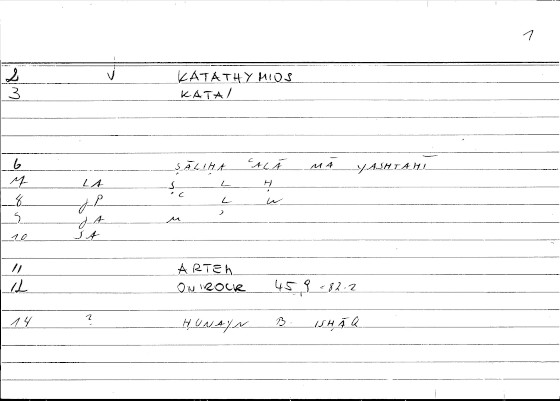 1
2 v KATATHYMIOS
3 KATAI
6 ṢĀLIḤA ʿALĀ MĀ YASHTAHĪ
LA Ṣ L Ḥ
8 JP ʿ L W
9 JA M ʾ
10 SA
11 ARTEM
12 ONIROCR 45,9 - 82.2
14 ? ḤUNAYN B. ISḤĀQ